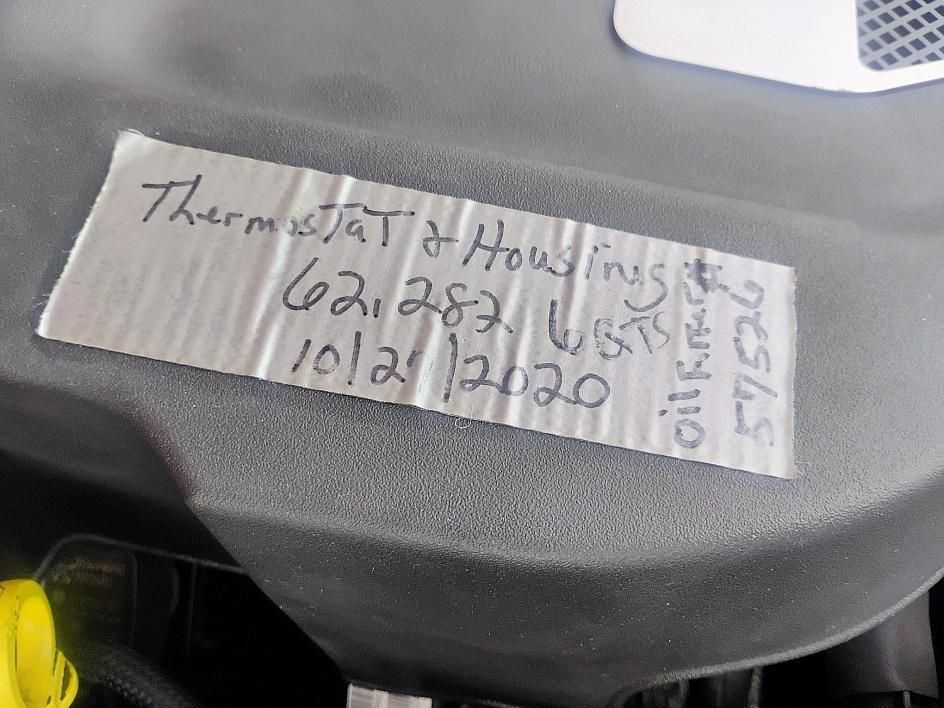 ThermosTaT & Housing
62,282 6 QTS
10/2'/2020
oil Filter #
57526